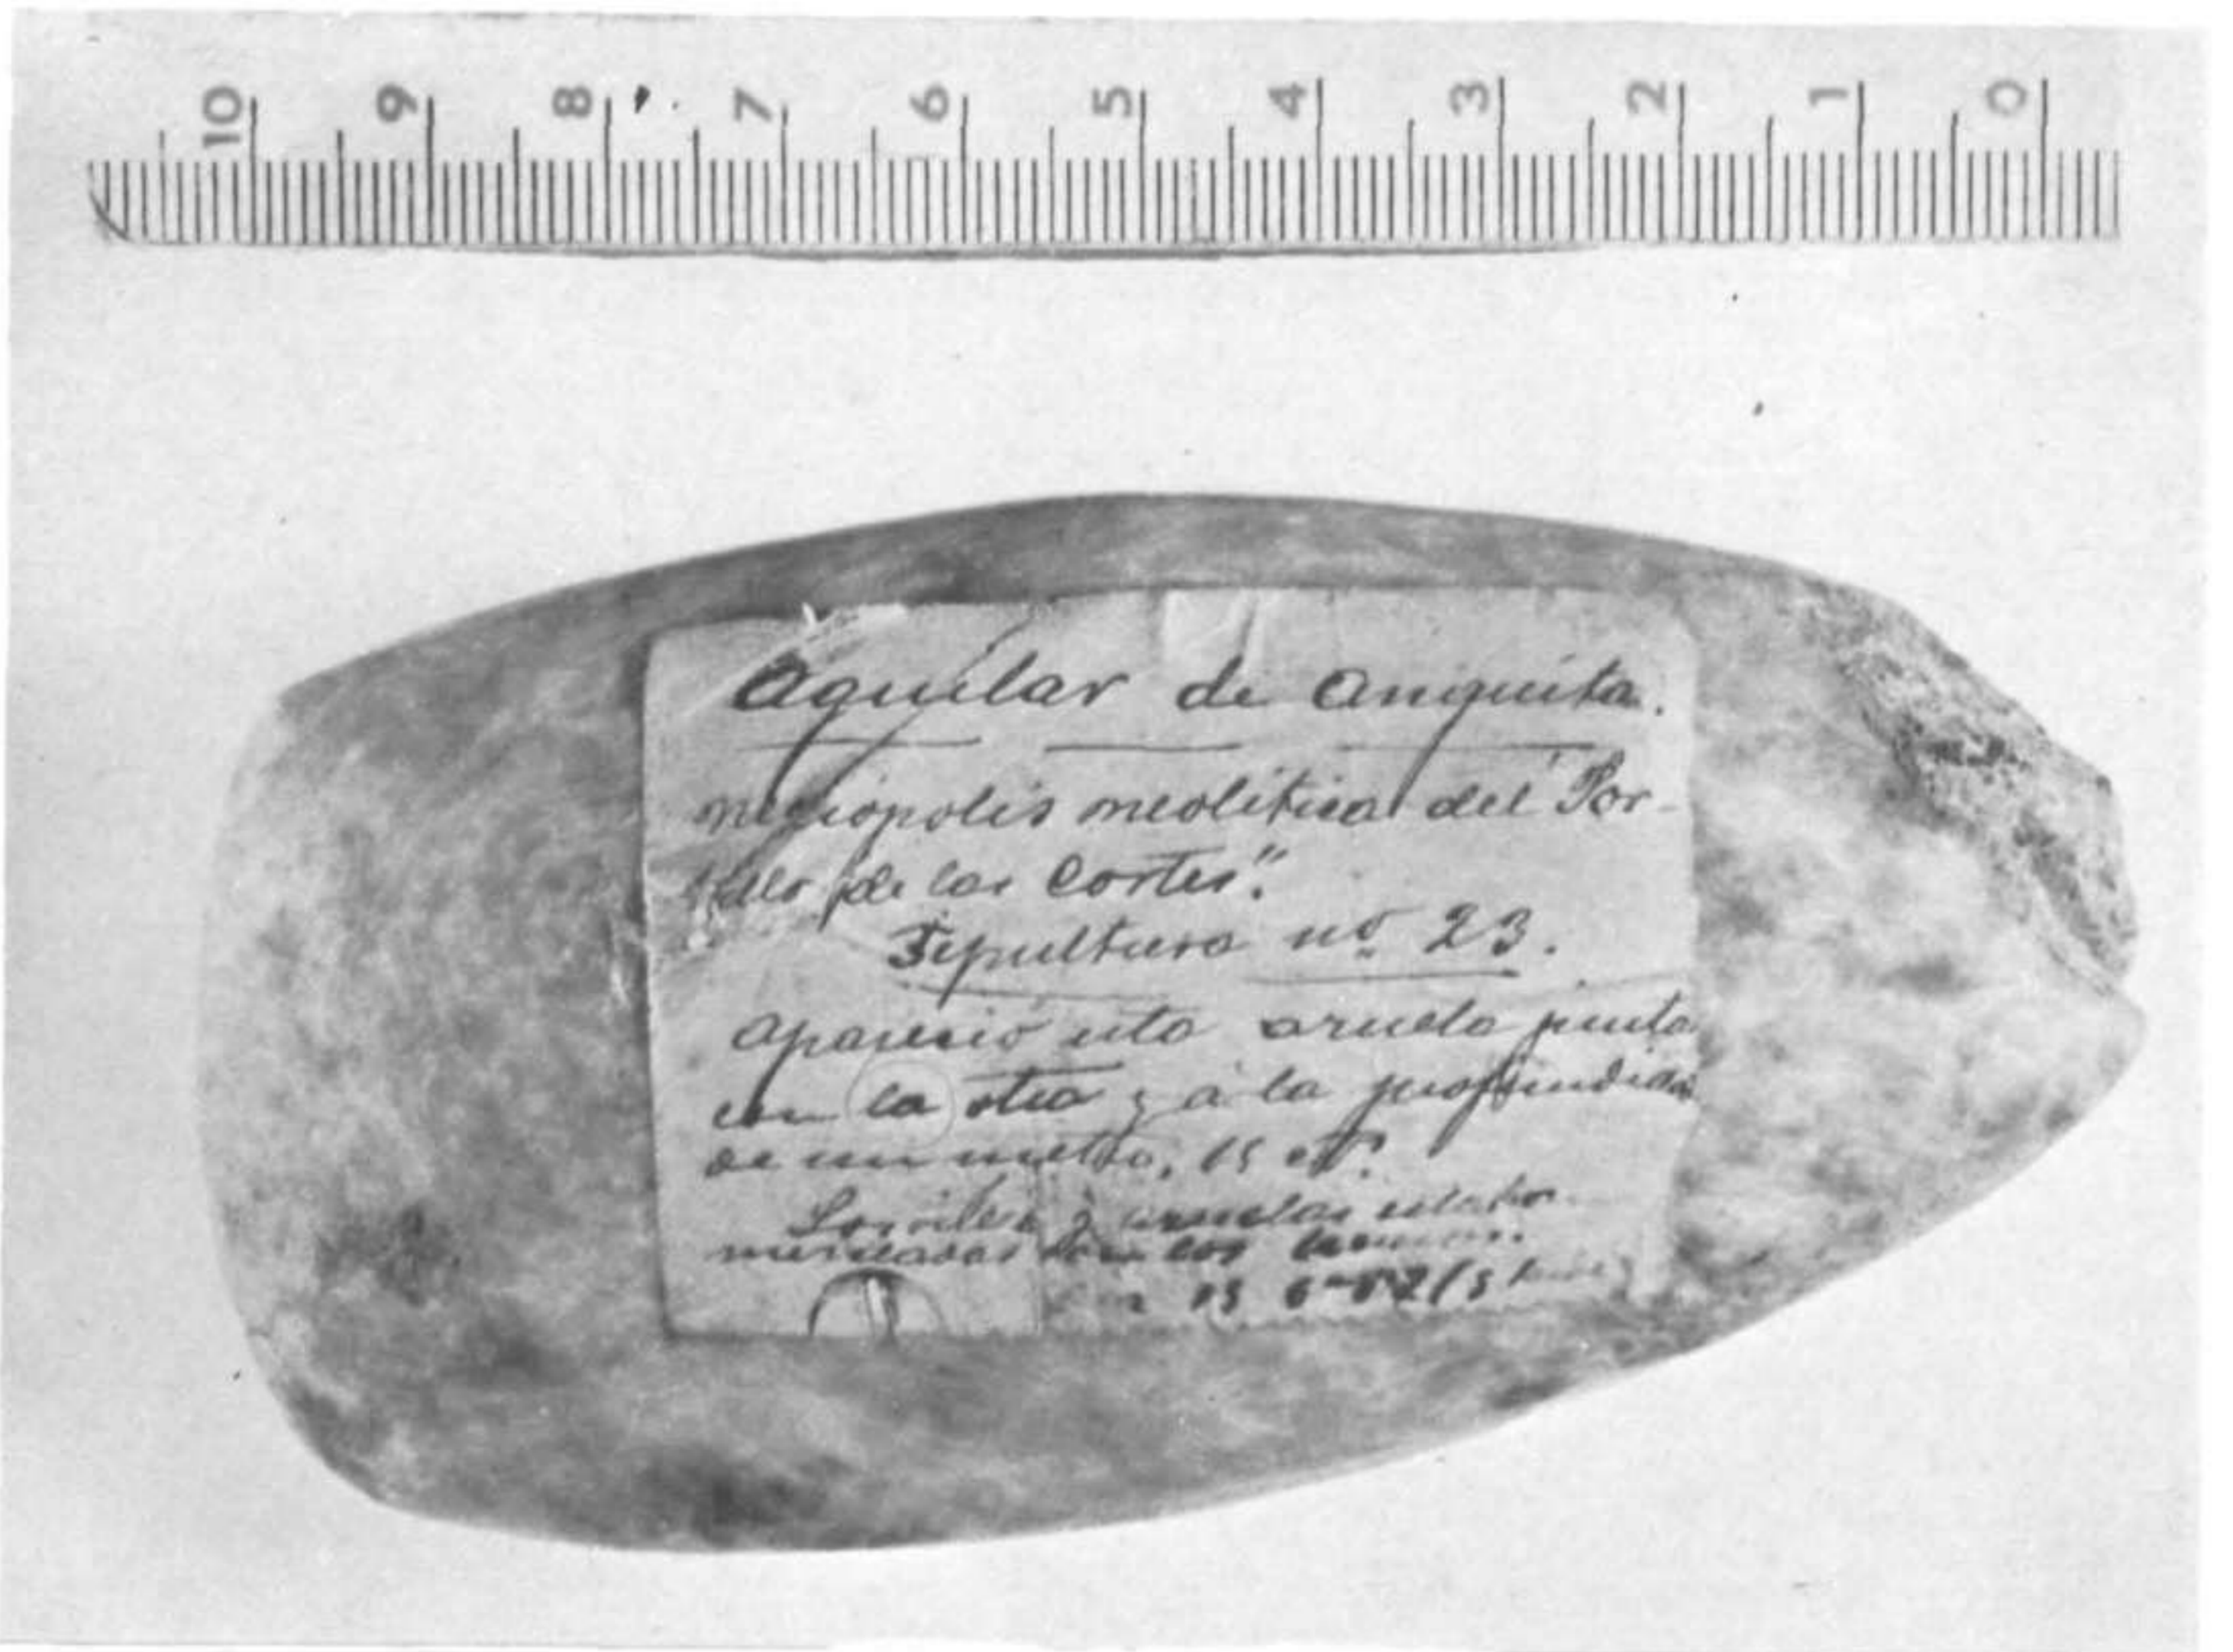 10 9 8 7 6 5 4 3 2 1 0
Aguilar de Anguita.
necropolis neolitica del "Por-
tillo de las Cortes".
Sepultura nº 23.
Aparecio esta azuela junta
con la otra y á la profundidad
de un metro, 15
y azuelas estaban
mezcladas con los